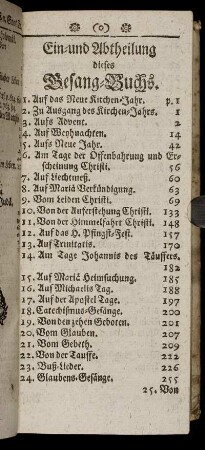 (o)
Ein- und Abtheilung
dieses
Gesang-Buchs.
1. Auf das Neue Kirchen-Jahr. p. 1
2. Zu Ausgang des Kirchen-Jahrs. 1
3. Aufs Advent. 2
4. Auf Weyhnachten. 14
5. Aufs Neue Jahr. 42
6. Am Tage der Offenbahrung und Er-
scheinung Christi. 56
7. Auf Liechtmeß. 60
8. Auf Mariä Verkändigung. 63
9. Vom Leiden Christi. 69
10. Von der Auferstehung Christi. 133
11. Von der Himmelfahrt Christi. 148
12. Auf das H. Pfingst-Fest. 157
13. Auf Trinitatis. 170
14. Am Tage Johannis des Täuffers.
182
15. Auf Mariä Heimsuchung. 185
16. Auf Michaelis Tag. 188
17. Auf der Apostel Tage. 197
18. Catechismus-Gesänge. 200
19. Von den zehen Geboten. 201
20. Vom Glauben. 207
21. Vom Gebeth. 209
22. Von der Tauffe. 222
23. Buß-Lieder. 226
24. Glaubens-Gesänge. 255
25. Von